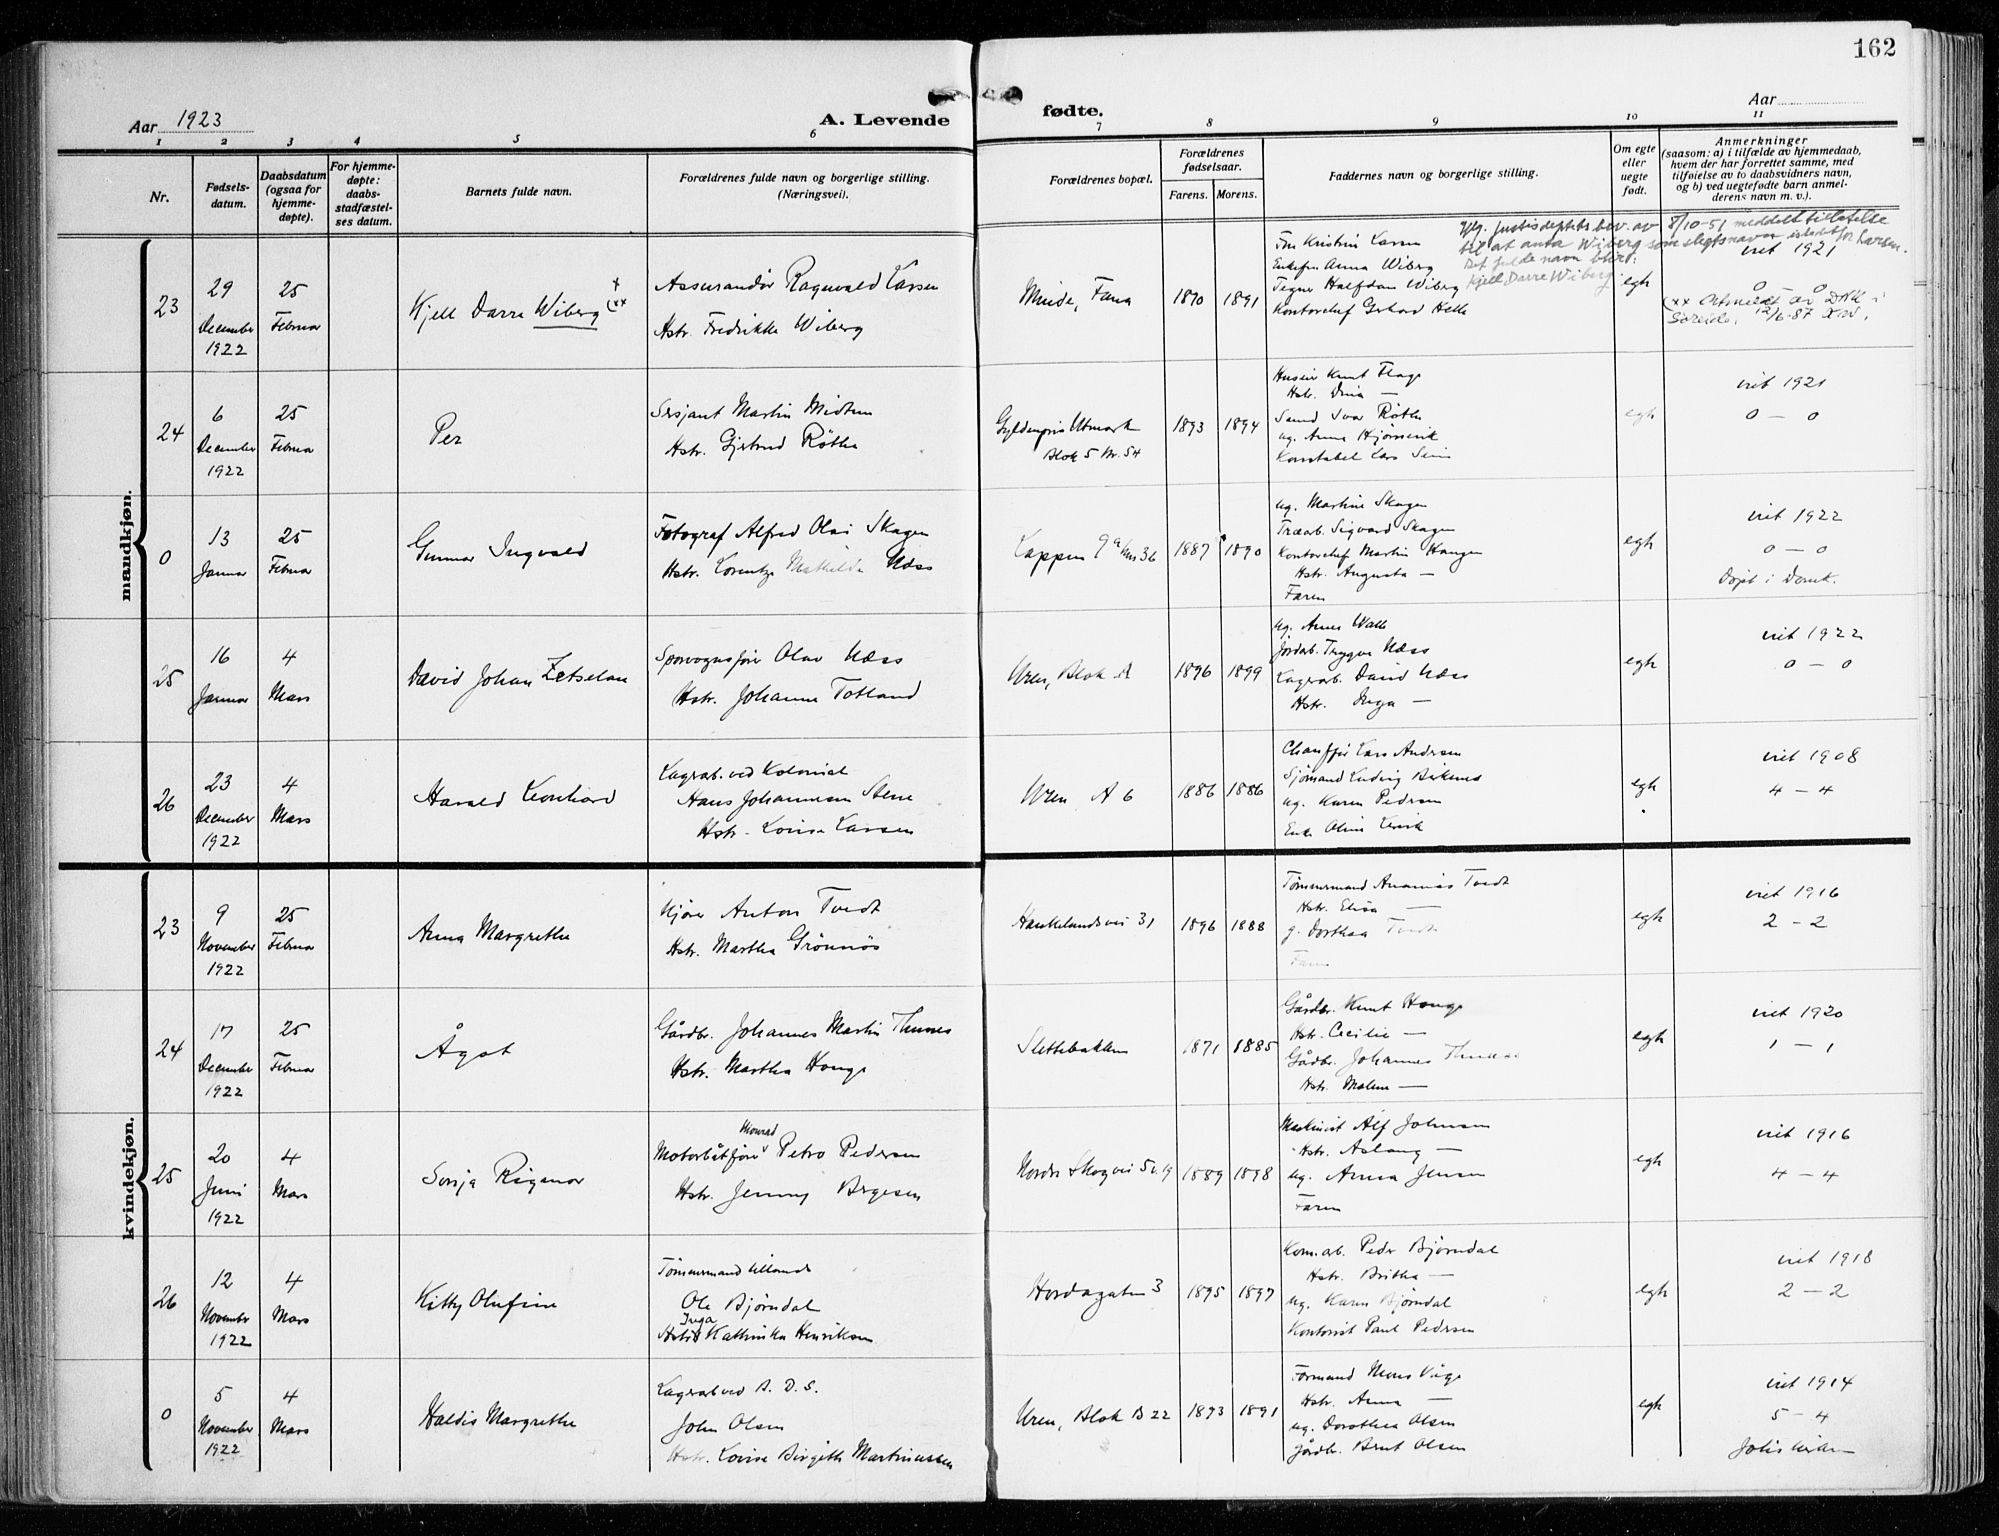 162
Aar 1923
A. Levende
fødte.
Aar
1 2 3 4 5 6 7 8 9 10 11
Nr.
Fødsels-
datum.
Daabsdatum
(ogsaa for
hjemme-
døpte).
For hjemme-
døpte:
daabs-
stadfæstel-
ses datum.
Barnets fulde navn.
Forældrenes fulde navn og borgerlige stilling.
(Næringsvei).
Forældrenes bopæl.
Forældrenes
fødselsaar.
Farens. Morens.
Faddernes navn og borgerlige stilling.
Om egte
eller
uegte
født.
Anmerkninger
(saasom: a) i tilfælde av hjemmedaab,
hvem der har forrettet samme, med
tilføielse av to daabsvidners navn,
og b) ved uegtefødte barn anmel-
derens navn m. v.).
mandkjøn.
23
29
December
1922
25
Februar
Kjell Darre Wiberg (xx
Assurandør Ragnvald Larsen
Hstr. Fredrikke Wiberg
Minde, Fana
1890 1891
Frk Kristin Larsen
Enkefru Anna Wiberg
Tegner Halfdan Wiberg
Kontorchef Gerhard Helle
egte
Iflg. Justisdeptets bev. av 8/10-51 meddelt tillatelse
til at anta Wiberg som slegtsnavn istedetfor Larsen.
Det fulde navn blir:
Kjell Darre Wiberg
viet 1921
(xx Utmeldt av DNK i
Søreide, 12/6-87
24
6
December
1922
25
Februar
Per
Sersjant Martin Midtun
Hstr. Gjertrud Røthe
Gyldenpris Utmark
Blok 5 Nr. 54
1893 1894
Huseier Knut Flage
Hstr. Dina —
Ivar Røthe
ug. Anna
Konstabel Lars
egte
viet 1921
0 — 0
0
13
Januar
25
Februar
Gunnar Ingvald
Fotograf Alfred Olai Skagen
Hstr. Lorentze Mathilde Næss
Lappen 9a hus 36
1887 1890
ug. Martine Skagen
Træarb. Sigvard Skagen
Kontorchef Martin Haugen
Hstr. Augusta —
Faren
egte
viet 1922
0 — 0
Døpt i Domk.
25
16
Januar
4
Mars
David Johan Zetselan
Sporvognsfører Olav Næss
Hstr. Johanne Totland
Uren, Blok A
1896 1899
ug. Anna Walle
Jordarb. Trygve Næss
Lagerarb. David Næss
Hstr. Inga —
egte
viet 1922
0 — 0
26
23
December
1922
4
Mars
Harald Leonhard
Lagerarb. ved Kolonial
Hans Johannesen Stene
Hstr. Louise Larsen
Uren A 6
1886 1886
Chauffør Lars Andersen
Sjømand Ludvig Birkenes
ug. Karen Pedersen
Enke Oline Lervik
egte
viet 1908
4 — 4
kvindekjøn.
23
9
November
1922
25
Februar
Anna Margrethe
Kjører Anton Tvedt
Hstr. Martha Grønnøs
Haukelandsvei 31
1896 1888
Tømmermand Ananias Tvedt
Hstr. Elisa —
g. Dorthea Tvedt
Faren
egte
viet 1916
2 — 2
24
17
December
1922
25
Februar
Ågot
Gårdbr. Johannes Martin Thunes
Hstr. Martha Hauge
Slettebakken
1871 1885
Gårdbr. Knut Hauge
Hstr. Cecilie —
Gårdbr. Johannes Thunes
Hstr. Malene —
egte
viet 1920
1 — 1
25
20
Juni
1922
4
Mars
Sonja Rigmor
Monrad
Motorbåtfører Petro Pedersen
Hstr. Jenny Børgesen
Nordre Skogvei 5v.19
1889 1898
Maskinist Alf Johnsen
Hstr. Aslaug —
ug. Anna Jensen
Faren
egte
viet 1916
4 — 4
26
12
November
1922
4
Mars
Kitty Olufine
Tømmermand utlands
Ole Bjørndal
Inga
Hstr. Kathinka Henriksen
Hordagaten 3
1895 1897
Kom. arb. Peder Bjørndal
Hstr. Britha —
ug. Karen Bjørndal
Kontorist Paul Pedersen
egte
viet 1918
2 — 2
0
5
November
1922
4
Mars
Haldis Margrethe
Lagerarb ved B. D. S.
John Olsen
Hstr. Lovise Birgitte Martinussen
Uren, Blok B 22
1893 1891
Formand Mons Våge
Hstr. Anna —
ug. Dorothea Olsen
Gårdbr. Bernt Olsen
egte
viet 1914
5 — 4
Joh.s kirken